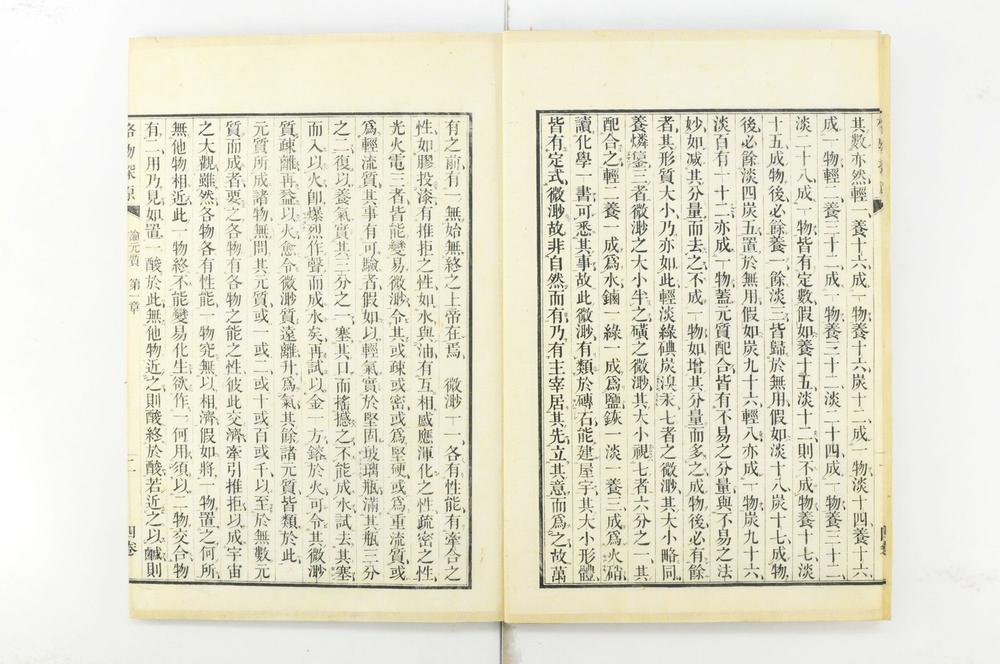 其數亦然輕一養十六成一物養十六炭十二成一物淡十四養十六
成一物輕二養三十二成一物養三十二淡二十四成一物養三十二
淡二十八成一物皆有定數假如養十五淡十二則不成物養十七淡
十五成物後必餘養一餘淡三皆歸於無用假如淡十八炭十七成物
後必餘淡四炭五置於無用假如炭九十六輕八亦成一物炭九十六
淡百有一十二亦成一物蓋元質配合皆有不易之分量與不易之法
妙如減其分量而去之不成一物如增其分量而多之成物後必有餘
者其形質大小乃亦如此輕淡綠碘炭溴汞七者之微渺其大小略同
養燐𥔵三者微渺之大小半之磺之微渺其大小視七者六分之一其
配合之輕二養一成爲水鏀一綠一成爲鹽鉃一淡一養三成爲火硝
讀化學一書可悉其事故此微渺有類於磚石能建屋宇其大小形體
皆有定式微渺故非自然而有乃有主宰居其先立其意而爲之故萬
有之前有一無始無終之上帝在焉 微渺一一各有性能有牽合之
性如膠投漆有推拒之性如水與油有互相感應渾化之性疏密之性
光火電三者皆能變易微渺令其或疎或密或爲堅硬或爲重流質或
爲輕流質其事有可驗者假如以輕氣實於堅固玻璃瓶滿其瓶三分
之二復以養氣實其三分之一塞其口而搖撼之不能成水試去其塞
而入以火卽爆烈作聲而成水矣再試以金一方鎔於火可令其微渺
質疎離再益以火愈令微渺質遠離升爲氣其餘諸元質皆類於此
元質所成諸物無問其元質或一或二或十或百或千以至於無數元
質而成者要之各物有各物之能之性彼此交濟牽引推拒以成宇宙
之大觀雖然各物各有性能一物究無以相濟假如將一物置之何所
無他物相近此一物終不能變易化生欲作一何用須以二物交合物
有二用乃見如置一酸於此無他物近之則酸終於酸若近之以鹹則
格物探原 論元質 第一章 二 四卷